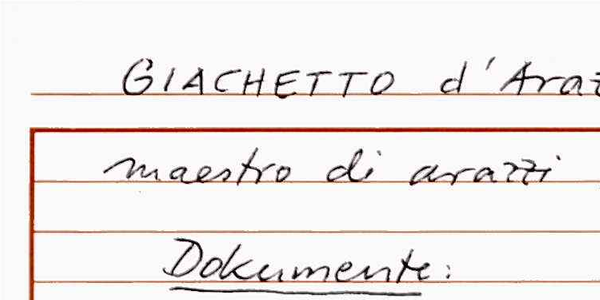 GIACHETTO d'Araz
maestro di arazzi
Dokumente: